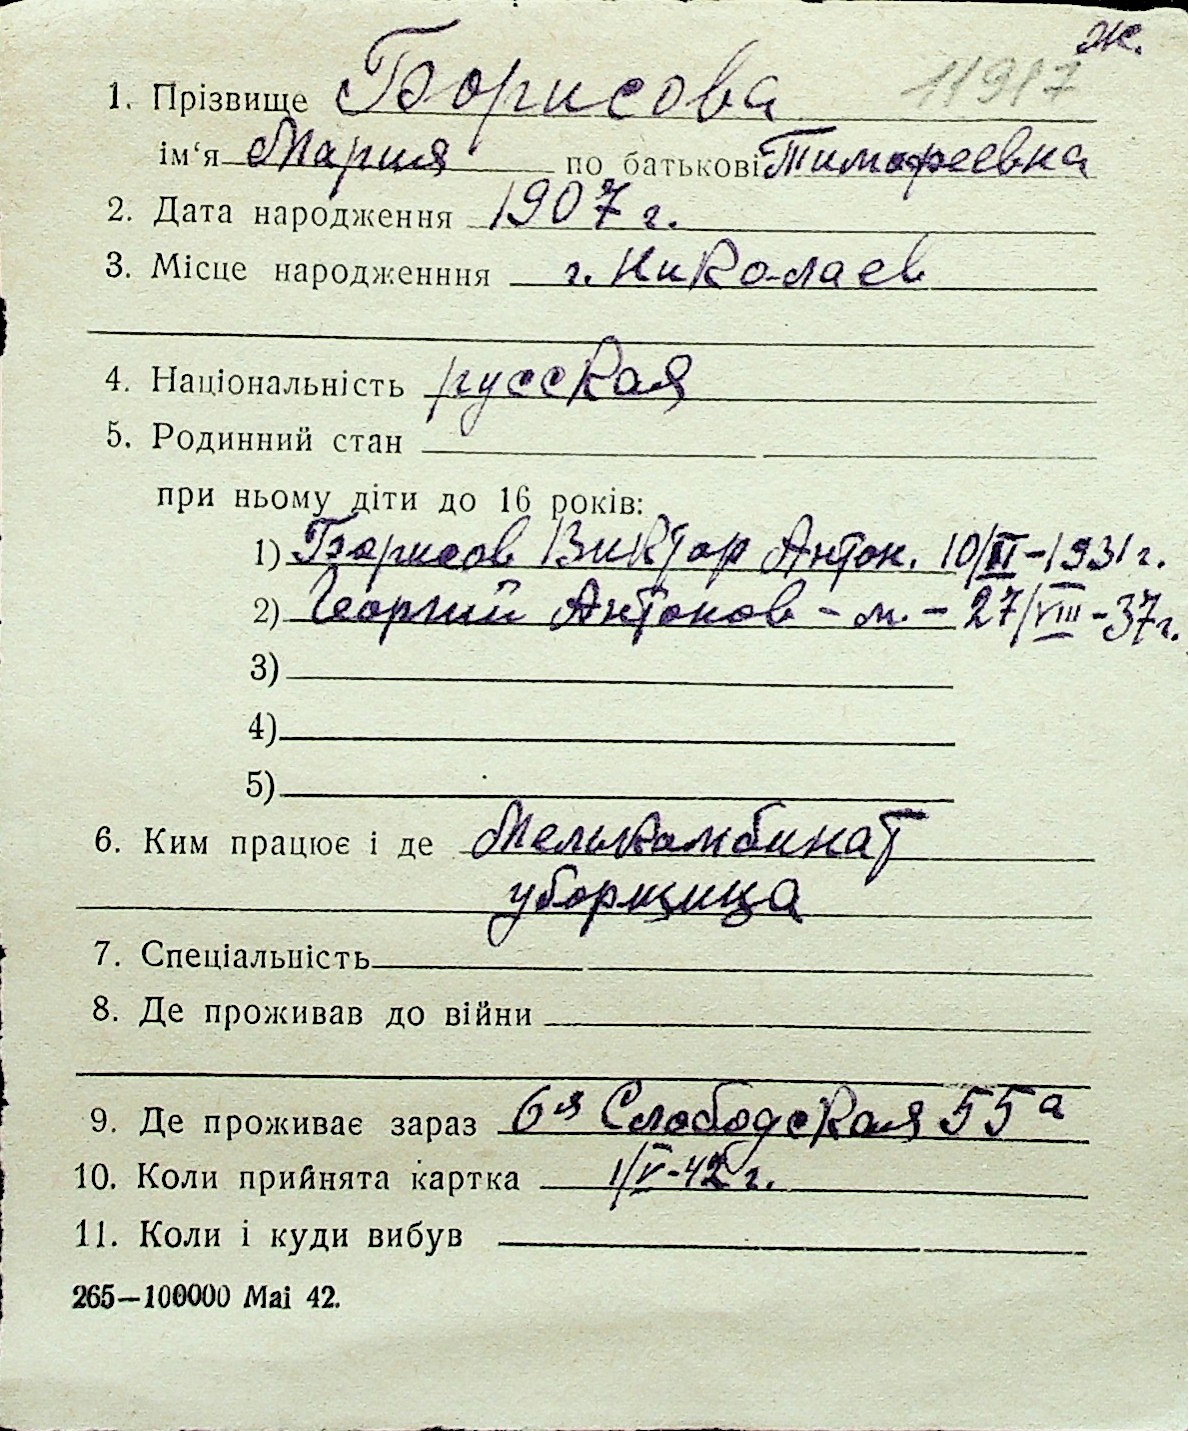 ж.
11917
1. Прізвище Борисова
ім‘я Мария по батькові Тимофеевна
2. Дата народження 1907 г.
3. Місце народженння г. Николаев
4. Національність русская
5. Родинний стан
при ньому діти до 16 років:
1) Борисов Виктор Антон. 10/VI-1931 г.
2) Георгий Антонов - м. - 27/VIII-37 г.
3)
4)
5)
6. Ким працює і де Мелькомбинат
уборщица
7. Спеціальність
8. Де проживав до війни
9. Де проживає зараз 6я Слободская 55а
10. Коли прийнята картка 1/V-42 г.
11. Коли і куди вибув
265—100000 Mai 42.